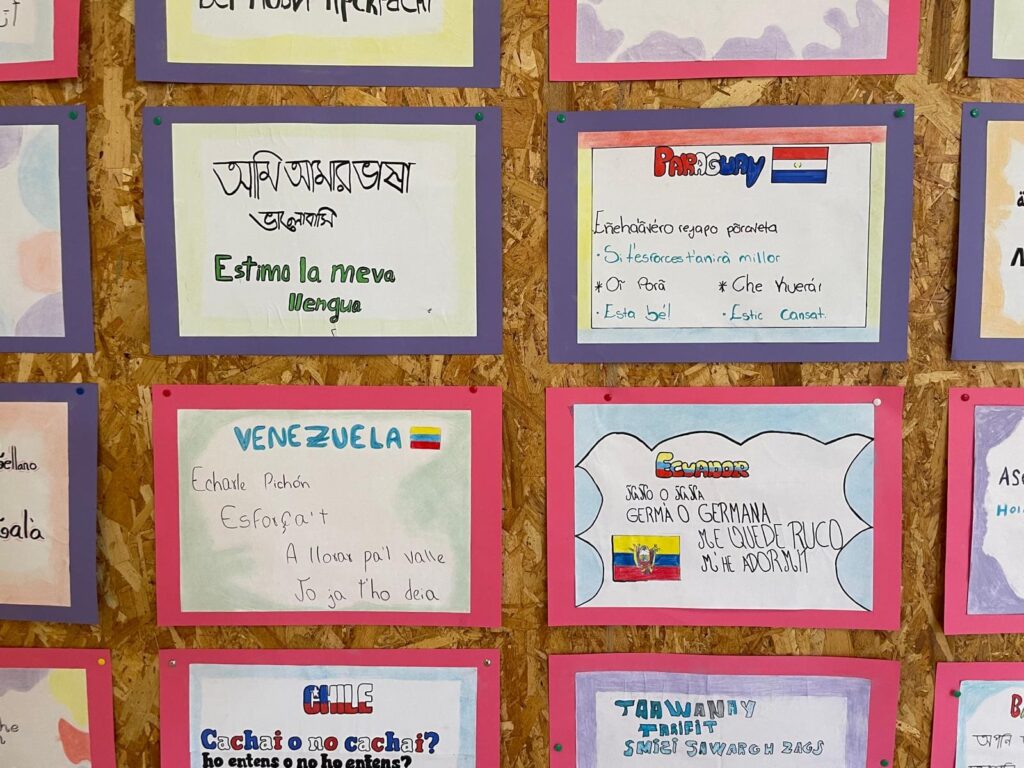 আমি আমার ভাষা
ভালোবাসি
Estimo la meva
llengua
PARAGUAY
Eñeha'ãvéro rejapo pōraveta
· Si t'esforces t'anirà millor
* Oĩ Porã
* Che Kuerái
· Esta bé!
· Estic cansat.
sellano
Català
VENEZUELA
Echarle Pichón
Esforça't
A llorar pa'l valle
Jo ja t'ho deia
ECUADOR
ÑAÑO O ÑAÑA
GERMÀ O GERMANA
ME QUEDE RUCO
M'HE ADORMIT
CHILE
Cachai o no cachai?
ho entens o no ho entens?
TAAWANAY
TARIFIT
SMIZI SAWARGH ZAGS